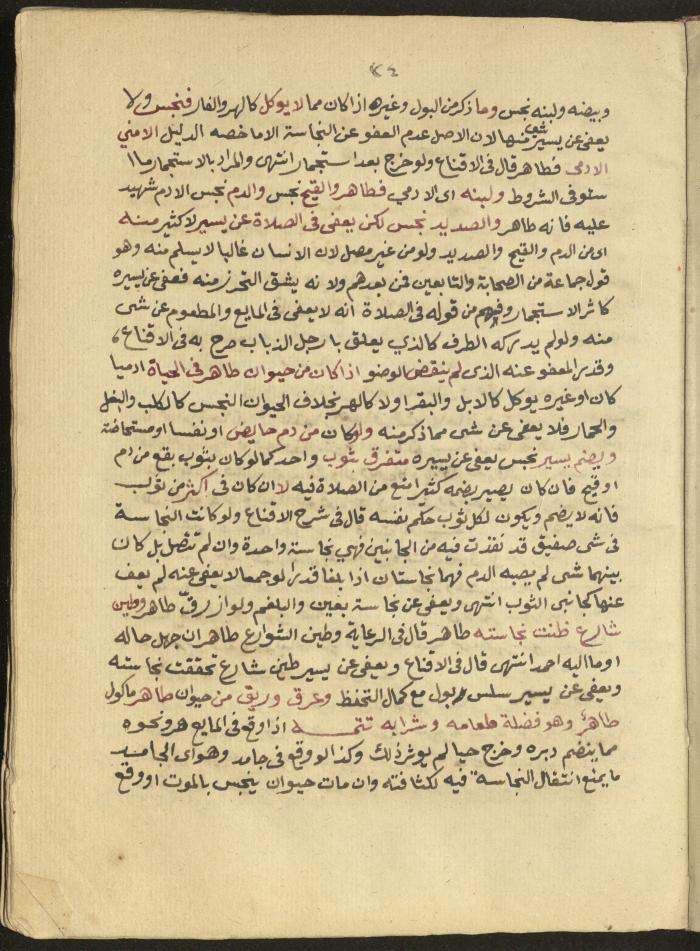 ٤٢
وبيضه ولبنه نجس وما ذكر من البول وغيره اذا كان مما لا يوكل كالهر والفار فنجس ولا
يعفى عن يسير شي منها لان الاصل عدم العفو عن النجاسة الا ما خصه الدليل الا مني
الادمي فطاهر قال في الاقناع ولو خرج بعد استجمار انتهى والمراد بالاستجمار ما
ستوفى الشروط ولبنه اى الادمي فطاهر والقيح نجس والدم نجس الا دم شهيد
عليه فانه طاهر والصديد نجس لكن يعفى في الصلاة عن يسير لا كثير منه
اى من الدم والقيح والصديد ولو من غير مصل لان الانسان غالبا لا يسلم منه وهو
قول جماعة من الصحابة والتابعين فمن بعدهم ولانه يشق التحرز منه فعفى عن يسيره
كاثر الاستجمار وفهم من قوله في الصلاة انه لا يعفى في المايع والمطعوم عن شى
منه ولو لم يدركه الطرف كالذي يعلق بارجل الذباب صرح به في الاقناع
وقدر المعفو عنه الذى لم ينقض الوضو اذا كان من حيوان طاهر في الحياة ادميا
كان او غيره يوكل كالابل والبقر اولا كالهر بخلاف الحيوان النجس كالكلب والبغل
والحمار فلا يعفى عن شى مما ذكر منه ولو كان من دم حايض او نفسا او مستحاضة
ويضم يسير نجس يعفى عن يسيره متفرق بثوب واحد كما لو كان بثوب بقع من دم
او قيح فان كان يصير بضمه كثيرا منع من الصلاة فيه لا ان كان في اكثر من ثوب
فانه لا يضم ويكون لكل ثوب حكم نفسه قال في شرح الاقناع ولو كانت النجاسة
في شى صفيق قد نفذت فيه من الجانبين فهي نجاسة واحدة وان لم تتصل بل كان
بينهما شى لم يصبه الدم فهما نجاستان اذا بلغا قدرا لو جمعا لا يعفى عنه لم يعف
عنها كجانبى الثوب انتهى ويعفى عن نجاسة بعين والبلغم ولو ازرق طاهر وطين
شارع ظنت نجاسته طاهر قال في الرعاية وطين الشوارع طاهر ان جهل حاله
اوما اليه احمد انتهى قال في الاقناع ويعفى عن يسير طين شارع تحققت نجاسته
ويعفى عن يسير سلس بول مع كمال التحفظ وعرق وريق من حيوان طاهر ماكول
طاهر وهو فضلة طعامه وشرابه تتمـــة اذا وقع في المايع هر ونحوه
مما ينضم دبره وخرج حيا لم يوثر ذلك وكذا لو وقع في جامد وهو اى الجامد
ما يمنع انتقال النجاسة فيه لكثافته وان مات حيوان ينجس بالموت او وقع